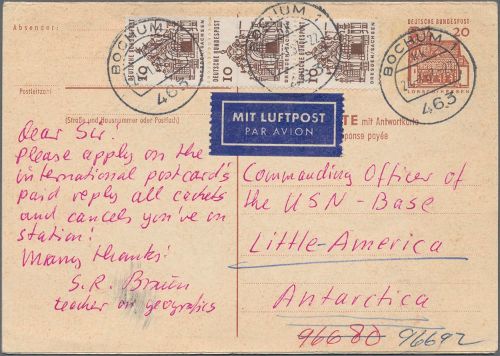 Absender:
DEUTSCHE BUNDESPOST
20
LORSCH/HESSEN
10
DEUTSCHE BUNDESPOST
DRESDEN/SACHSEN
10
DEUTSCHE BUNDESPOST
DRESDEN/SACHSEN
10
DRESDEN/SACHSEN
BOCHUM 1
463
BOCHUM 1
463
Postleitzahl
(Straße und Hausnummer oder Postfach)
MIT LUFTPOST
PAR AVION
TE mit Antwortkarte
ponse payée
Dear Sir!
Please apply on the
international postcard's
paid reply all cachets
and cancels you've in
station!
Many thanks!
S.R. Braun
teacher on geografics
Commanding Officer of
the USN-Base
Little-America
Antarctica
96680 96692